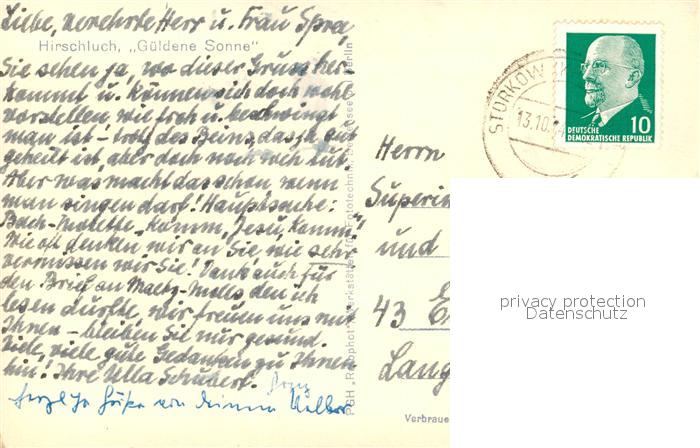 Liebe, verehrte Herr u. Frau Spree,
Hirschluch, „Güldene Sonne"
Sie sehen ja, wo dieser Gruss her-
kommt u. können sich doch wohl
vorstellen wie froh u. beschwingt
man ist – trotz des Beins, das ja gut
geheilt ist, aber doch noch weh tut.
Aber was macht das schon wenn
man singen darf! Hauptsache:
Bach-Motette „Komm, Jesu, komm"
Wie oft denken wir an Sie, wie sehr
vermissen wir Sie! Dank auch für
den Brief an Maetz den ich
lesen durfte, wir freuen uns mit
Ihnen – bleiben Sie nur gesund.
Viele, viele gute Gedanken zu Ihnen
hin! Ihre Ulla Schubert.
von
PGH „Rotophot" Werkstätten für Fototechnik, Berlin
STORKOW
13.10.
10
DEUTSCHE
DEMOKRATISCHE REPUBLIK
Herrn
Superin
und
43 E
Lang
privacy protection
Datenschutz
Verbrau